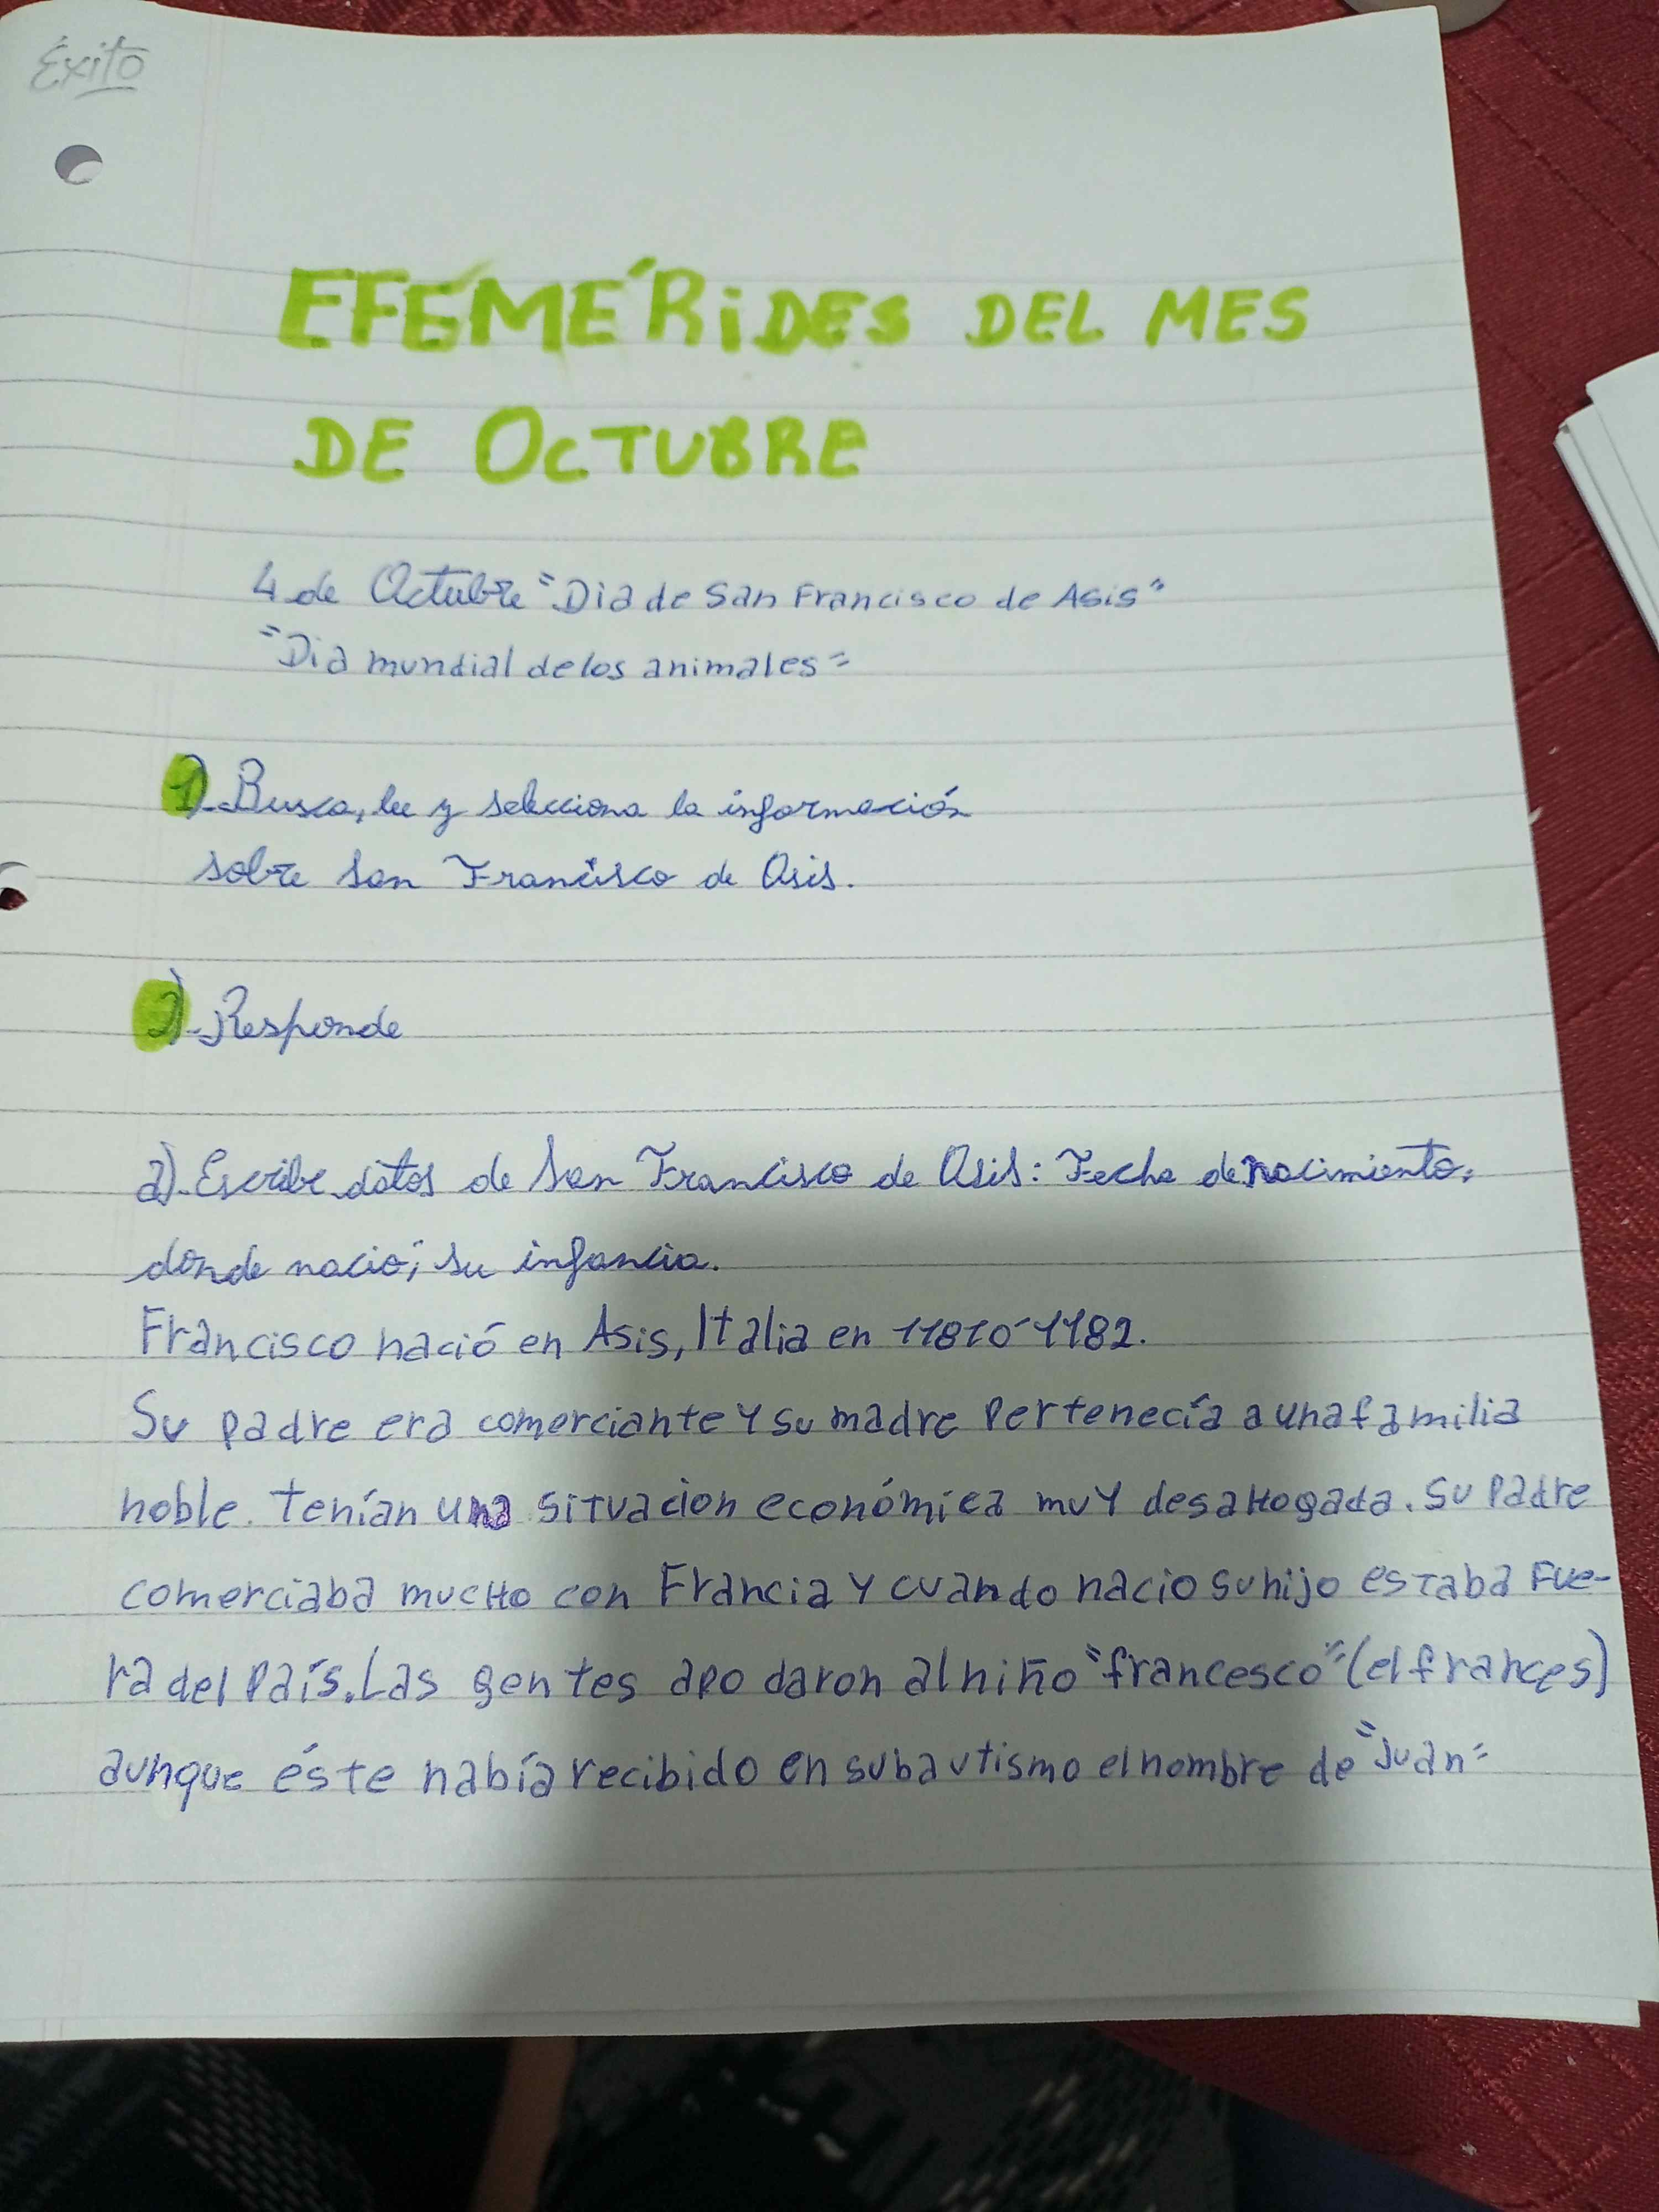 Éxito
EFEMÉRIDES DEL MES
DE OCTUBRE
4 de Octubre "Dia de San Francisco de Asis"
"Dia mundial de los animales"
1)-Busca, lee y selecciona la información
sobre San Francisco de Asis.
2)-Responde
a)-Escribe datos de San Francisco de Asis: Fecha de nacimiento,
donde nació; su infancia.
Francisco nació en Asis, Italia en 11810-1182.
Su padre era comerciante y su madre pertenecía a una familia
noble. tenían una situacion económica muy desahogada. Su padre
comerciaba mucho con Francia y cuando nacio su hijo estaba fue-
ra del País. Las gentes apodaron al niño "francesco" (el frances)
aunque éste había recibido en su bautismo el nombre de "Juan"